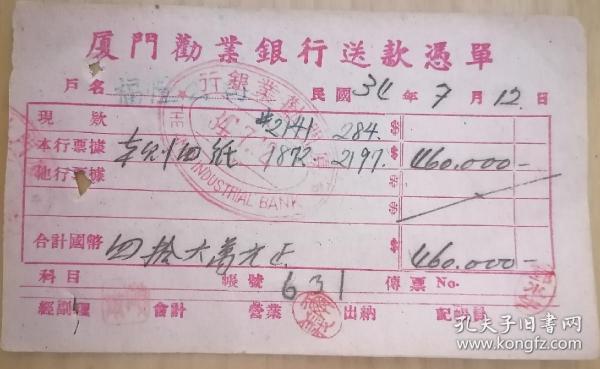 厦門勸業銀行送款憑單
戶名 福 民國34年7月12日
現款 #2141 284
本行票據 四紙 1872 2197 460.000-
他行票據
合計國幣 四拾六萬元正 460.000-
科目 帳號 631 傳票 No.
經副理 會計 營業 出納 記帳員
行銀業
INDUSTRIAL BANK
孔夫子旧书网